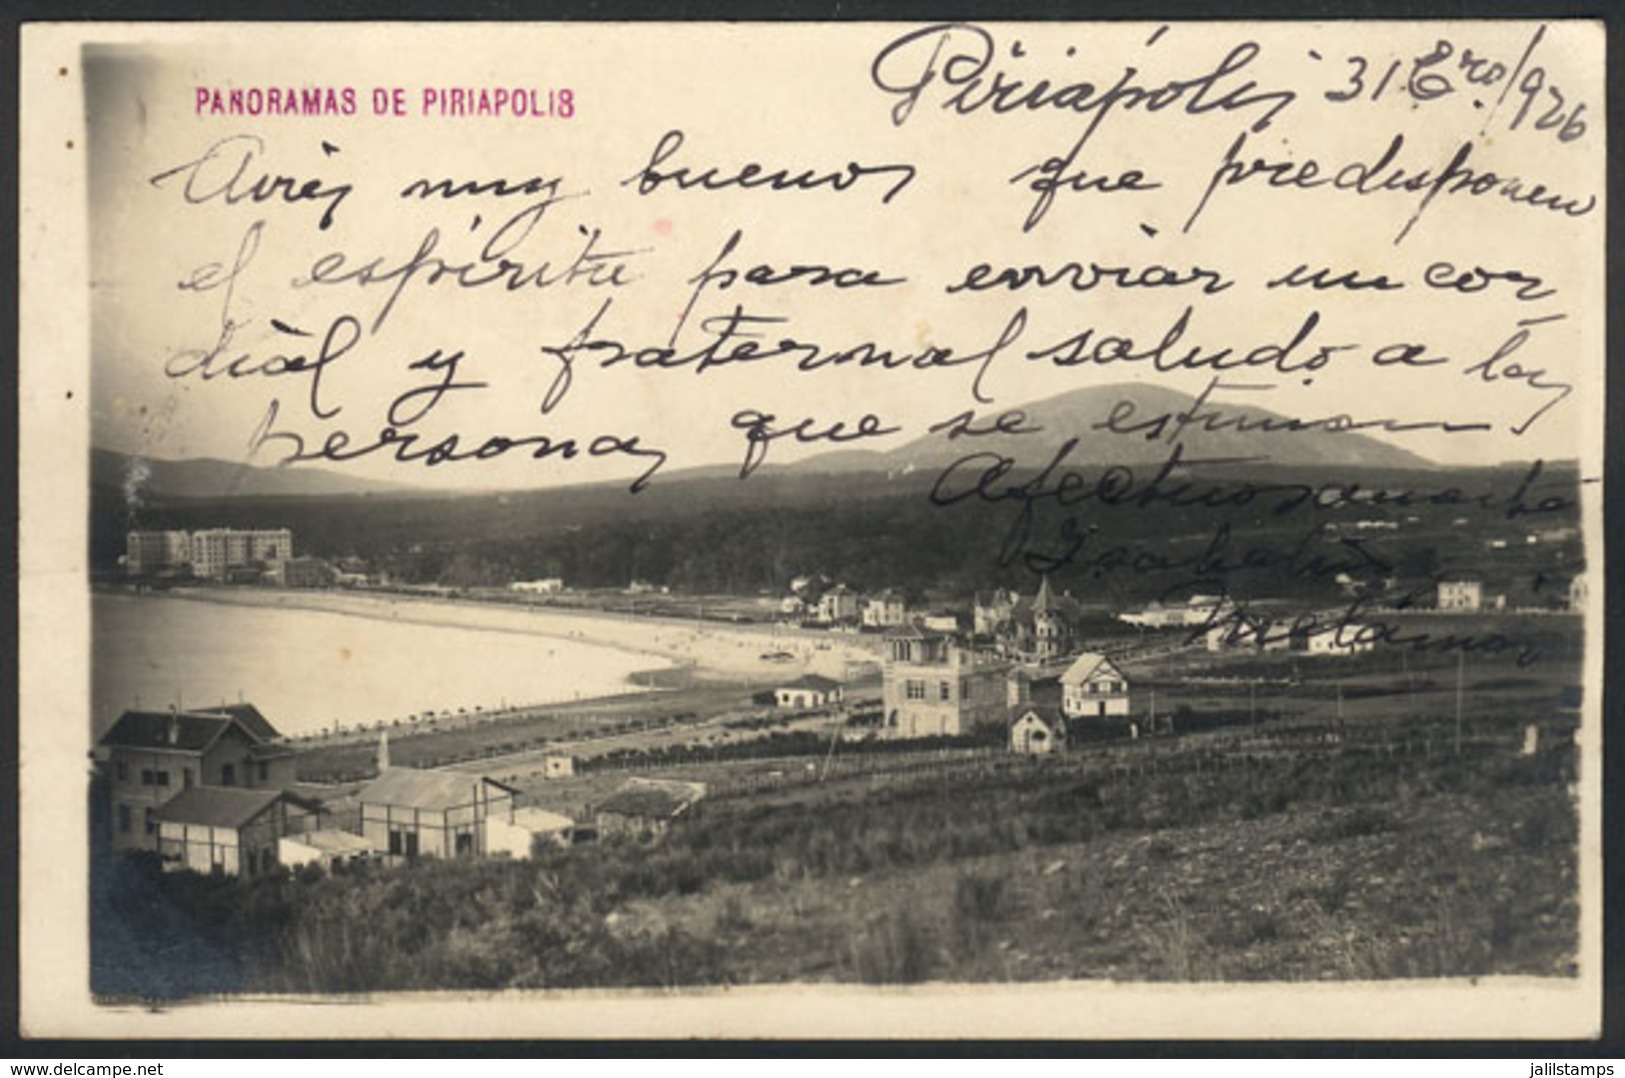 PANORAMAS DE PIRIAPOLIS
Piriápolis 31 Ero/926
Aires muy buenos que predisponen
el espíritu para enviar un cor
dial y fraternal saludo a las
personas que se estiman.
Afectuosamente
Matamoros
www.delcampe.net
jalilstamps